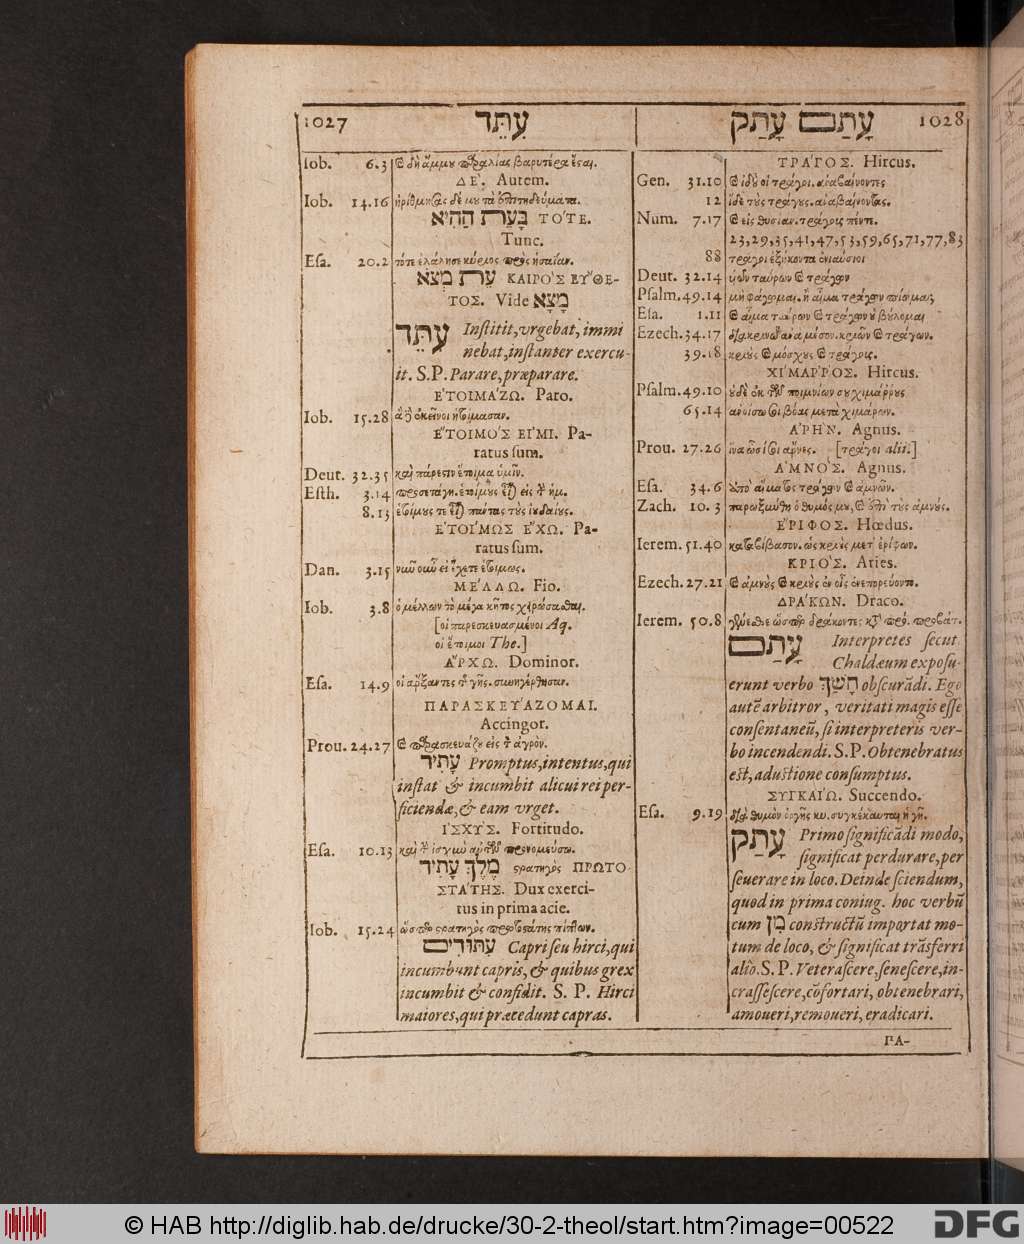 1027 עִתֵּד
Iob. 6.3 δὴ ἄμμου παραλίας βαρυτέρα ἔσται.
ΔΕ'. Autem.
Iob. 14.16 ἠρίθμησας δέ μου τὰ ἐπιτηδεύματα.
בָּעֵת הַהִיא ΤΟ'ΤΕ.
Tunc.
Esa. 20.2 τότε ἐλάλησε κύριος πρὸς ἡσαΐαν.
עֵת מְצֹא ΚΑΙΡΟ'Σ ΕΥ'ΘΕ-
ΤΟΣ. Vide מָצָא
עָתַד Institit, vrgebat, immi
nebat, instanter exercu-
it. S.P. Parare, præparare.
ΕΤΟΙΜΑ'ΖΩ. Paro.
Iob. 15.28 ἃ ἐκεῖνοι ἡτοίμασαν.
ΕΤΟΙΜΟ'Σ ΕΙ'ΜΙ. Pa-
ratus sum.
Deut. 32.35 καὶ πάρεστιν ἕτοιμα ὑμῖν.
Esth. 3.14 προσετάγη. ἑτοίμους εἶναι εἰς τ ἡμ.
8.13 ἑτοίμους τε εἶναι πάντας τοὺς ἰουδαίους.
ΕΤΟΙΜΩΣ ΕΧΩ. Pa-
ratus sum.
Dan. 3.15 νῦν οὖν εἰ ἔχετε ἑτοίμως.
ΜΕ'ΛΛΩ. Fio.
Iob. 3.8 ὁ μέλλων τὸ μέγα κῆτος χειρώσασθαι.
[οἱ παρεσκευασμένοι Aq.
οἱ ἕτοιμοι The.]
ΑΡΧΩ. Dominor.
Esa. 14.9 οἱ ἄρξαντες τ γῆς. συνηγέρθησαν.
ΠΑΡΑΣΚΕΥΑΖΟΜΑΙ.
Accingor.
Prou. 24.27 παρασκευάζου εἰς τ ἀγρόν.
עָתִיד Promptus, intentus, qui
instat & incumbit alicui rei per-
ficiendæ, & eam vrget.
ΙΣΧΥ'Σ. Fortitudo.
Esa. 10.13 καὶ τ ἰσχὺν αὐτῶν προνομεύσω.
מֶלֶךְ עָתִיד στρατηγὸς ΠΡΩΤΟ
ΣΤΑ'ΤΗΣ. Dux exerci-
tus in prima acie.
Iob. 15.24 ὥσπερ στρατηγὸς πρωτοστάτης πίπτων.
עַתּוּדִים Capri seu hirci, qui
incumbunt capris, & quibus grex
incumbit & confidit. S. P. Hirci
maiores, qui præcedunt capras.
עָתַם עָתַק 1028
ΤΡΑ'ΓΟΣ. Hircus.
Gen. 31.10 ἰδοὺ οἱ τράγοι. ἀναβαίνοντες
12 ἴδε τοὺς τράγους. ἀναβαίνοντας.
Num. 7.17 εἰς θυσίαν. τράγους πέντε.
23,29,35,41,47,53,59,65,71,77,83
88 τράγοι ἑξήκοντα ἐνιαύσιοι
Deut. 32.14 υἱῶν ταύρων τράγων
Psalm. 49.14 μὴ φάγομαι. ἢ αἷμα τράγων πίομαι;
Esa. 1.11 αἷμα ταύρων τράγων οὐ βούλομαι
Ezech. 34.17 διακρινῶ ἀνὰ μέσον. κριῶν τράγων.
39.18 κριοὺς μόσχους τράγους.
ΧΙ'ΜΑΡΡΟΣ. Hircus.
Psalm. 49.10 οὐδὲ ἐκ τῶν ποιμνίων σου χιμάρρους
65.14 ἀνοίσω σοι βόας μετὰ χιμάρων.
ΑΡΗ'Ν. Agnus.
Prou. 27.26 ἵνα ὦσί σοι ἄρνες. [τράγοι alii.]
ΑΜΝΟ'Σ. Agnus.
Esa. 34.6 ἀπὸ αἵματος τράγων ἀμνῶν.
Zach. 10.3 παρωξύνθη ὁ θυμός μου, ἐπὶ τοὺς ἀμνούς.
ΕΡΙΦΟΣ. Hœdus.
Ierem. 51.40 καταβίβασον. ὡς κριοὺς μετ' ἐρίφων.
ΚΡΙΟ'Σ. Aries.
Ezech. 27.21 ἀμνοὺς κριοὺς ἐν οἷς ἐνεπορεύοντο.
ΔΡΑ'ΚΩΝ. Draco.
Ierem. 50.8 γένεσθε ὥσπερ δράκοντες
עָתַם Interpretes secut
Chaldæum exposu-
erunt verbo חָשַׁךְ obscurādi. Ego
autē arbitror, veritati magis esse
consentaneū, si interpreteris ver-
bo incendendi. S.P. Obtenebratus
est, adustione consumptus.
ΣΥΓΚΑΙΩ. Succendo.
Esa. 9.19 διὰ θυμὸν ὀργῆς κυ. συγκέκαυται ἡ γῆ.
עָתַק Primo significādi modo,
significat perdurare, per
seuerare in loco. Deinde sciendum,
quod in prima coniug. hoc verbū
cum מִן constructū importat mo-
tum de loco, & significat trāsferri
aliò. S. P. Veterascere, senescere, in-
crassescere, cōfortari, obtenebrari,
amoueri, remoueri, eradicari.
ΠΑ-
© HAB http://diglib.hab.de/drucke/30-2-theol/start.htm?image=00522
DFG